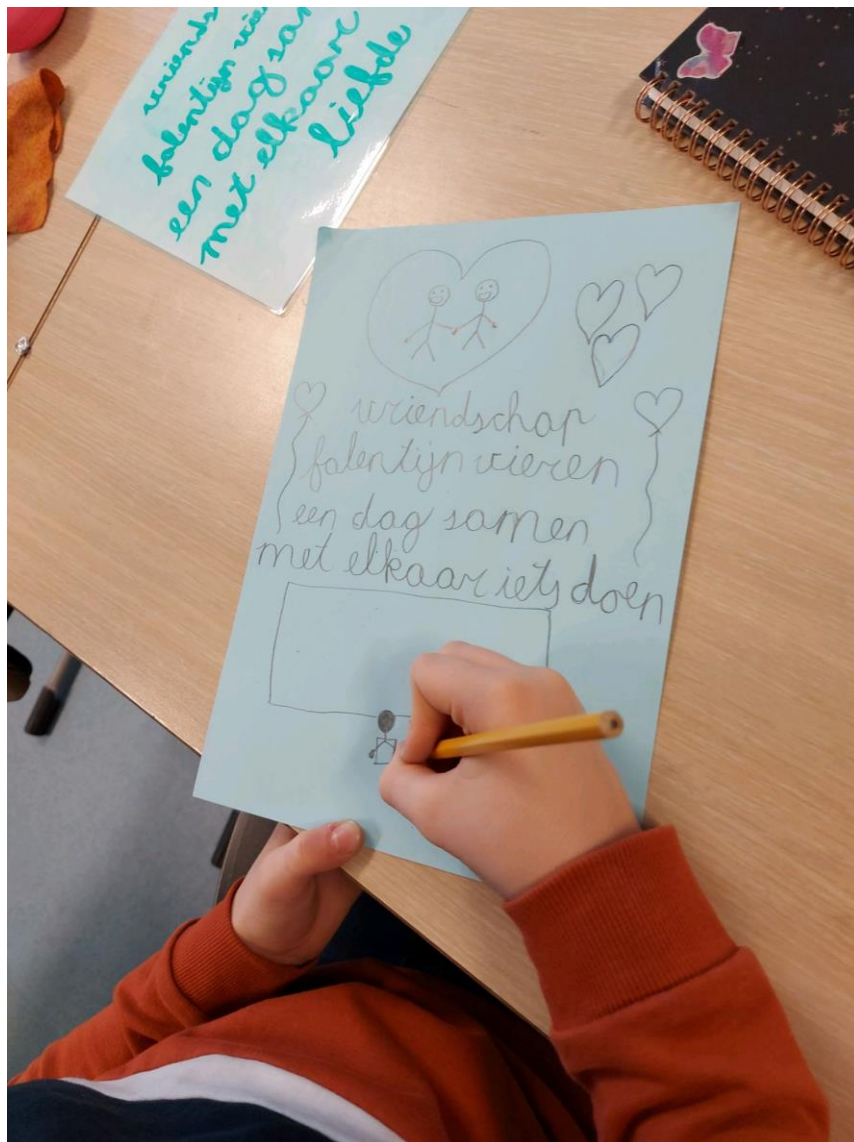 vriends
falentijn vie
een dag sa
met elkaar
liefde
vriendschap
falentijn vieren
een dag samen
met elkaar iets doen